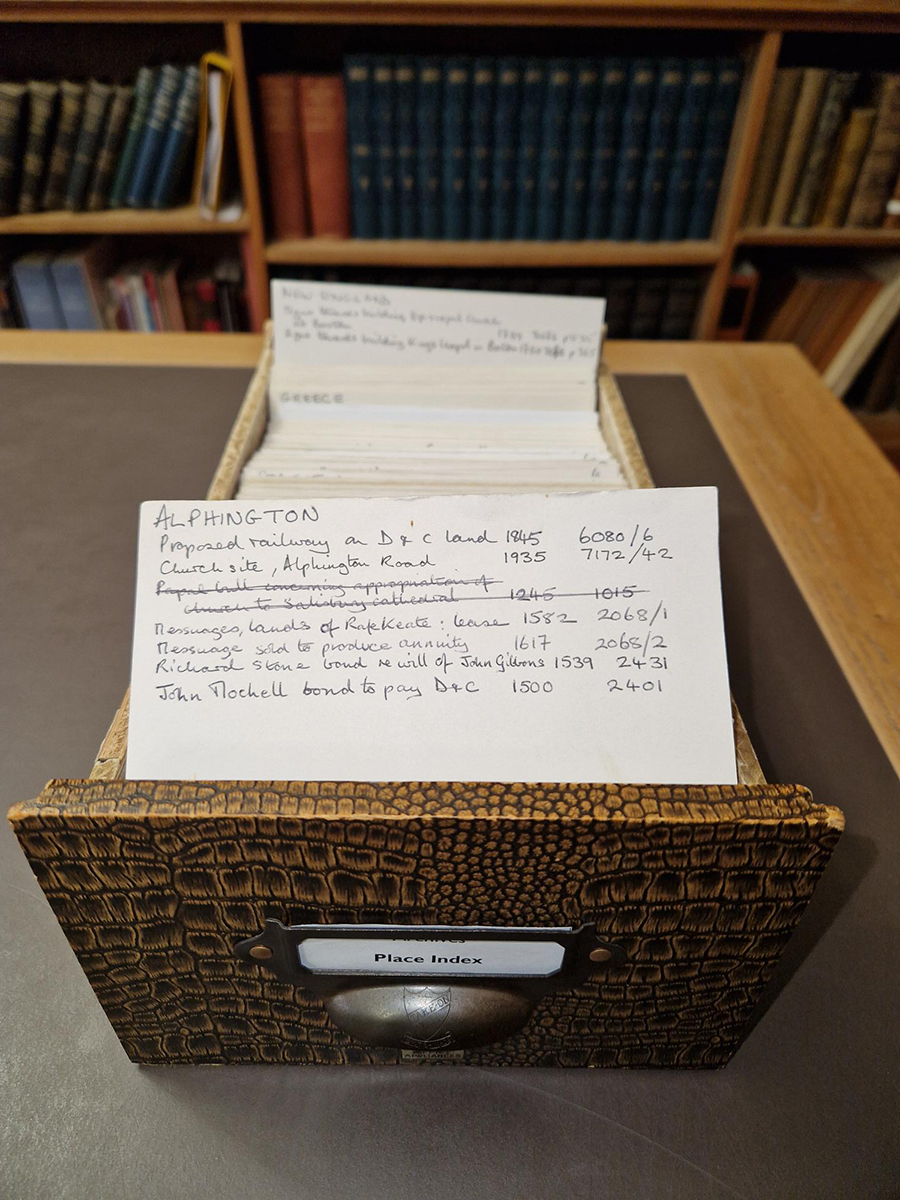 NEW ENGLAND
building Episcopal Church
at Boston
building Kings Chapel in Boston
GREECE
ALPHINGTON
Proposed railway on D & C land 1845 6080/6
Church site, Alphington Road 1935 7172/42
Papal bull concerning appropriation of
church to Salisbury cathedral 1245 1015
Messuages, lands of Rafe Keate : lease 1582 2068/1
Messuage sold to produce annuity 1617 2068/2
Richard Stone bond re will of John Gibbons 1539 2431
John Mochell bond to pay D&C 1500 2401
Archives
Place Index
APPLIANCES